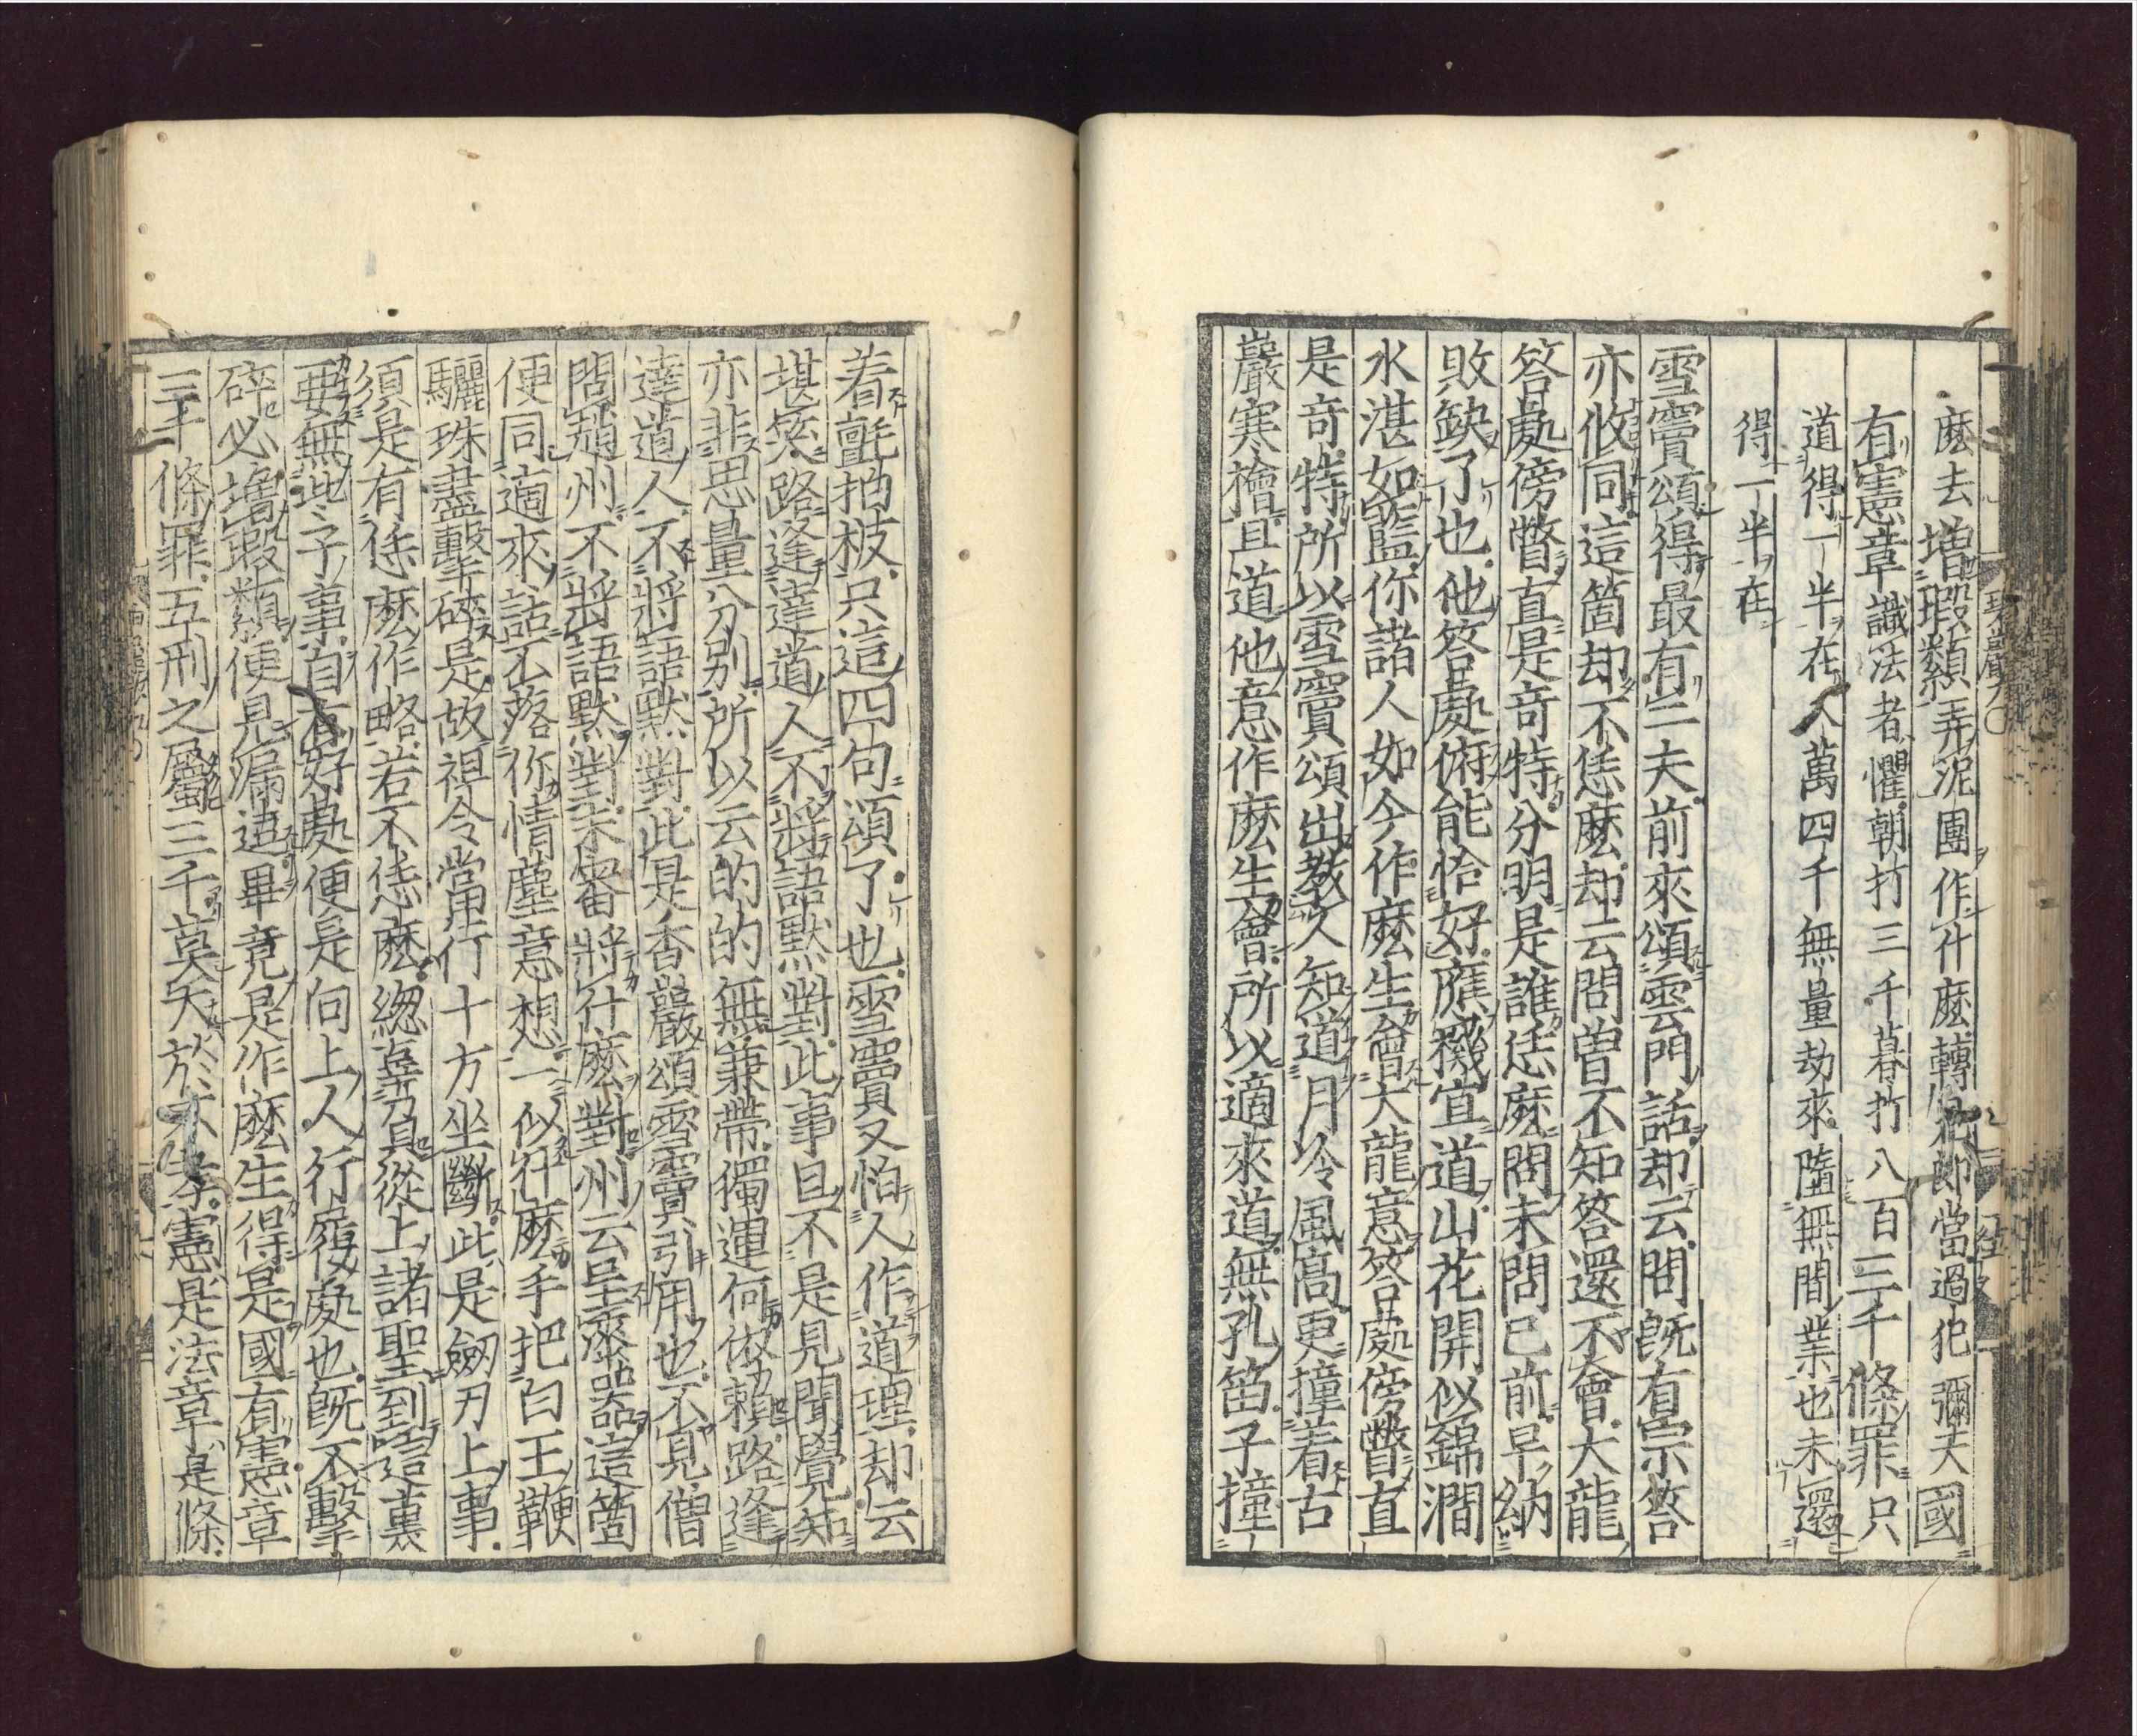 麽去增瑕纇弄泥團作什麽轉郎當過犯彌天國
有憲章識法者懼朝打三千暮打八百三千條罪只
道得一半在八萬四千無量劫來墮無間業也未還
得一半在
雪竇頌得最有工夫前來頌雲門話却云問既有宗答
亦攸同這箇却不恁麽却云問曾不知答還不會大龍
答處傍瞥直是奇特分明是誰恁麽問未問已前早納
敗缺了也他答處俯能恰好應機宜道山花開似錦澗
水湛如藍你諸人如今作麽生會大龍意答處傍瞥直
是奇特所以雪竇頌出教人知道月冷風高更撞着古
巖寒檜且道他意作麽生會所以適來道無孔笛子撞
着氈拍板只這四句頌了也雪竇又怕人作道理却云
堪笑路逢達道人不將語默對此事且不是見聞覺知
亦非思量分別所以云的的無兼帶獨運何依賴路逢
達道人不將語默對此是香嚴頌雪竇引用也不見僧
問趙州不將語默對未審將什麽對州云呈漆器這箇
便同適來話不落你情塵意想一似什麽手把白玉鞭
驪珠盡擊碎是故祖令當行十方坐斷此是劒刃上事
須是有恁麽作略若不恁麽緫辜負從上諸聖到這裏
要無些子事自有好處便是向上人行履處也既不擊
碎必增瑕纇便見漏逗畢竟是作麽生得是國有憲章
三千條罪五刑之屬三千莫大於不孝憲是法章是條